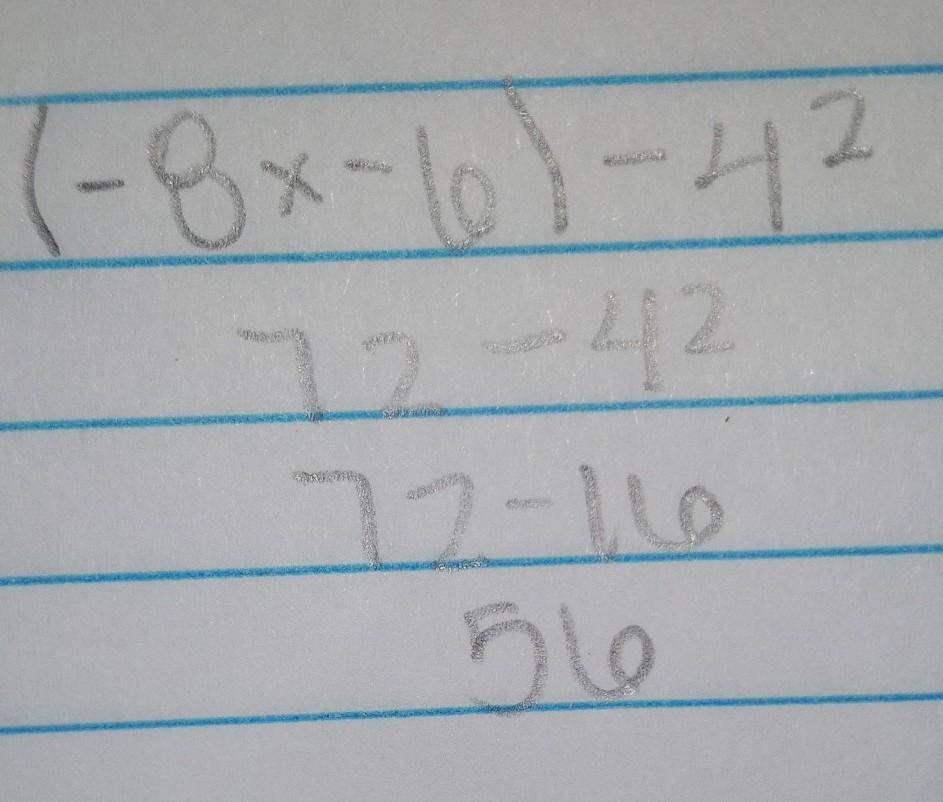 (-8x-6)-4²
72-4²
72-16
56